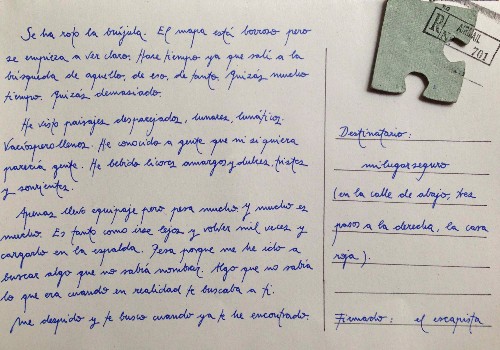 Se ha roto la brújula. El mapa está borroso pero
se empieza a ver claro. Hace tiempo ya que salí a la
búsqueda de aquello, de eso, de tanto. Quizás mucho
tiempo. Quizás demasiado.
He visto paisajes desparejados, lunares, lunáticos.
Vacíosperollenos. He conocido a gente que ni siquiera
parecía gente. He bebido licores amargos y dulces, tristes
y sonrientes.
Apenas llevo equipaje pero pesa mucho y mucho es
mucho. Es tanto como irse lejos y volver mil veces y
cargarlo en la espalda. Pesa porque me he ido a
buscar algo que no sabía nombrar. Algo que no sabía
lo que era cuando en realidad te buscaba a ti.
Me despido y te busco cuando ya te he encontrado.
R
AIRMAIL
No
701
Destinatario:
mi lugar seguro
(en la calle de abajo, tres
pasos a la derecha, la casa
roja).
Firmado: el escapista